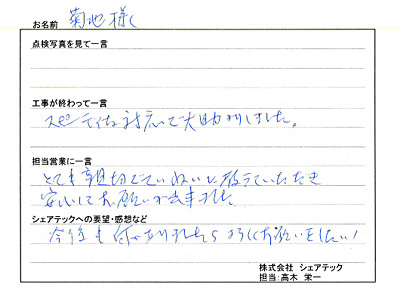 お名前 菊地 様
点検写真を見て一言
工事が終わって一言
スピーディな対応で大助かりしました。
担当営業に一言
とても親切でていねいに教えていただき
安心してお願いが出来ました
シェアテックへの要望・感想など
今後も何かありましたらよろしくお願いします!
株式会社 シェアテック
担当:高木 栄一